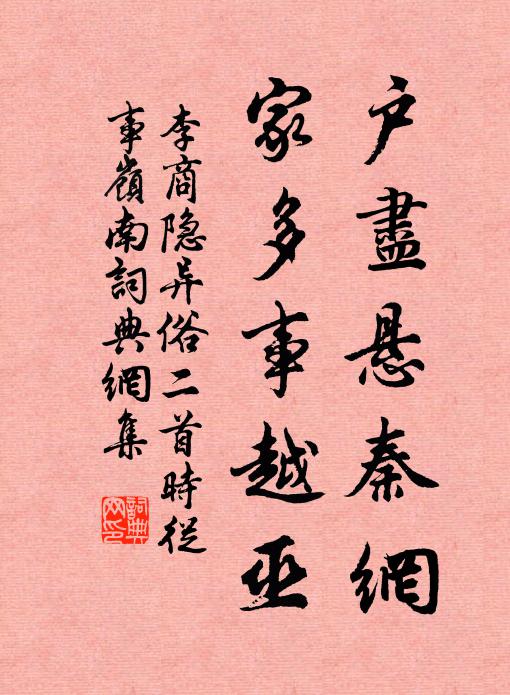 户盡悬秦網
家多事越巫
李商隐异俗二首時從
事嶺南詞典網集
詞典
网印